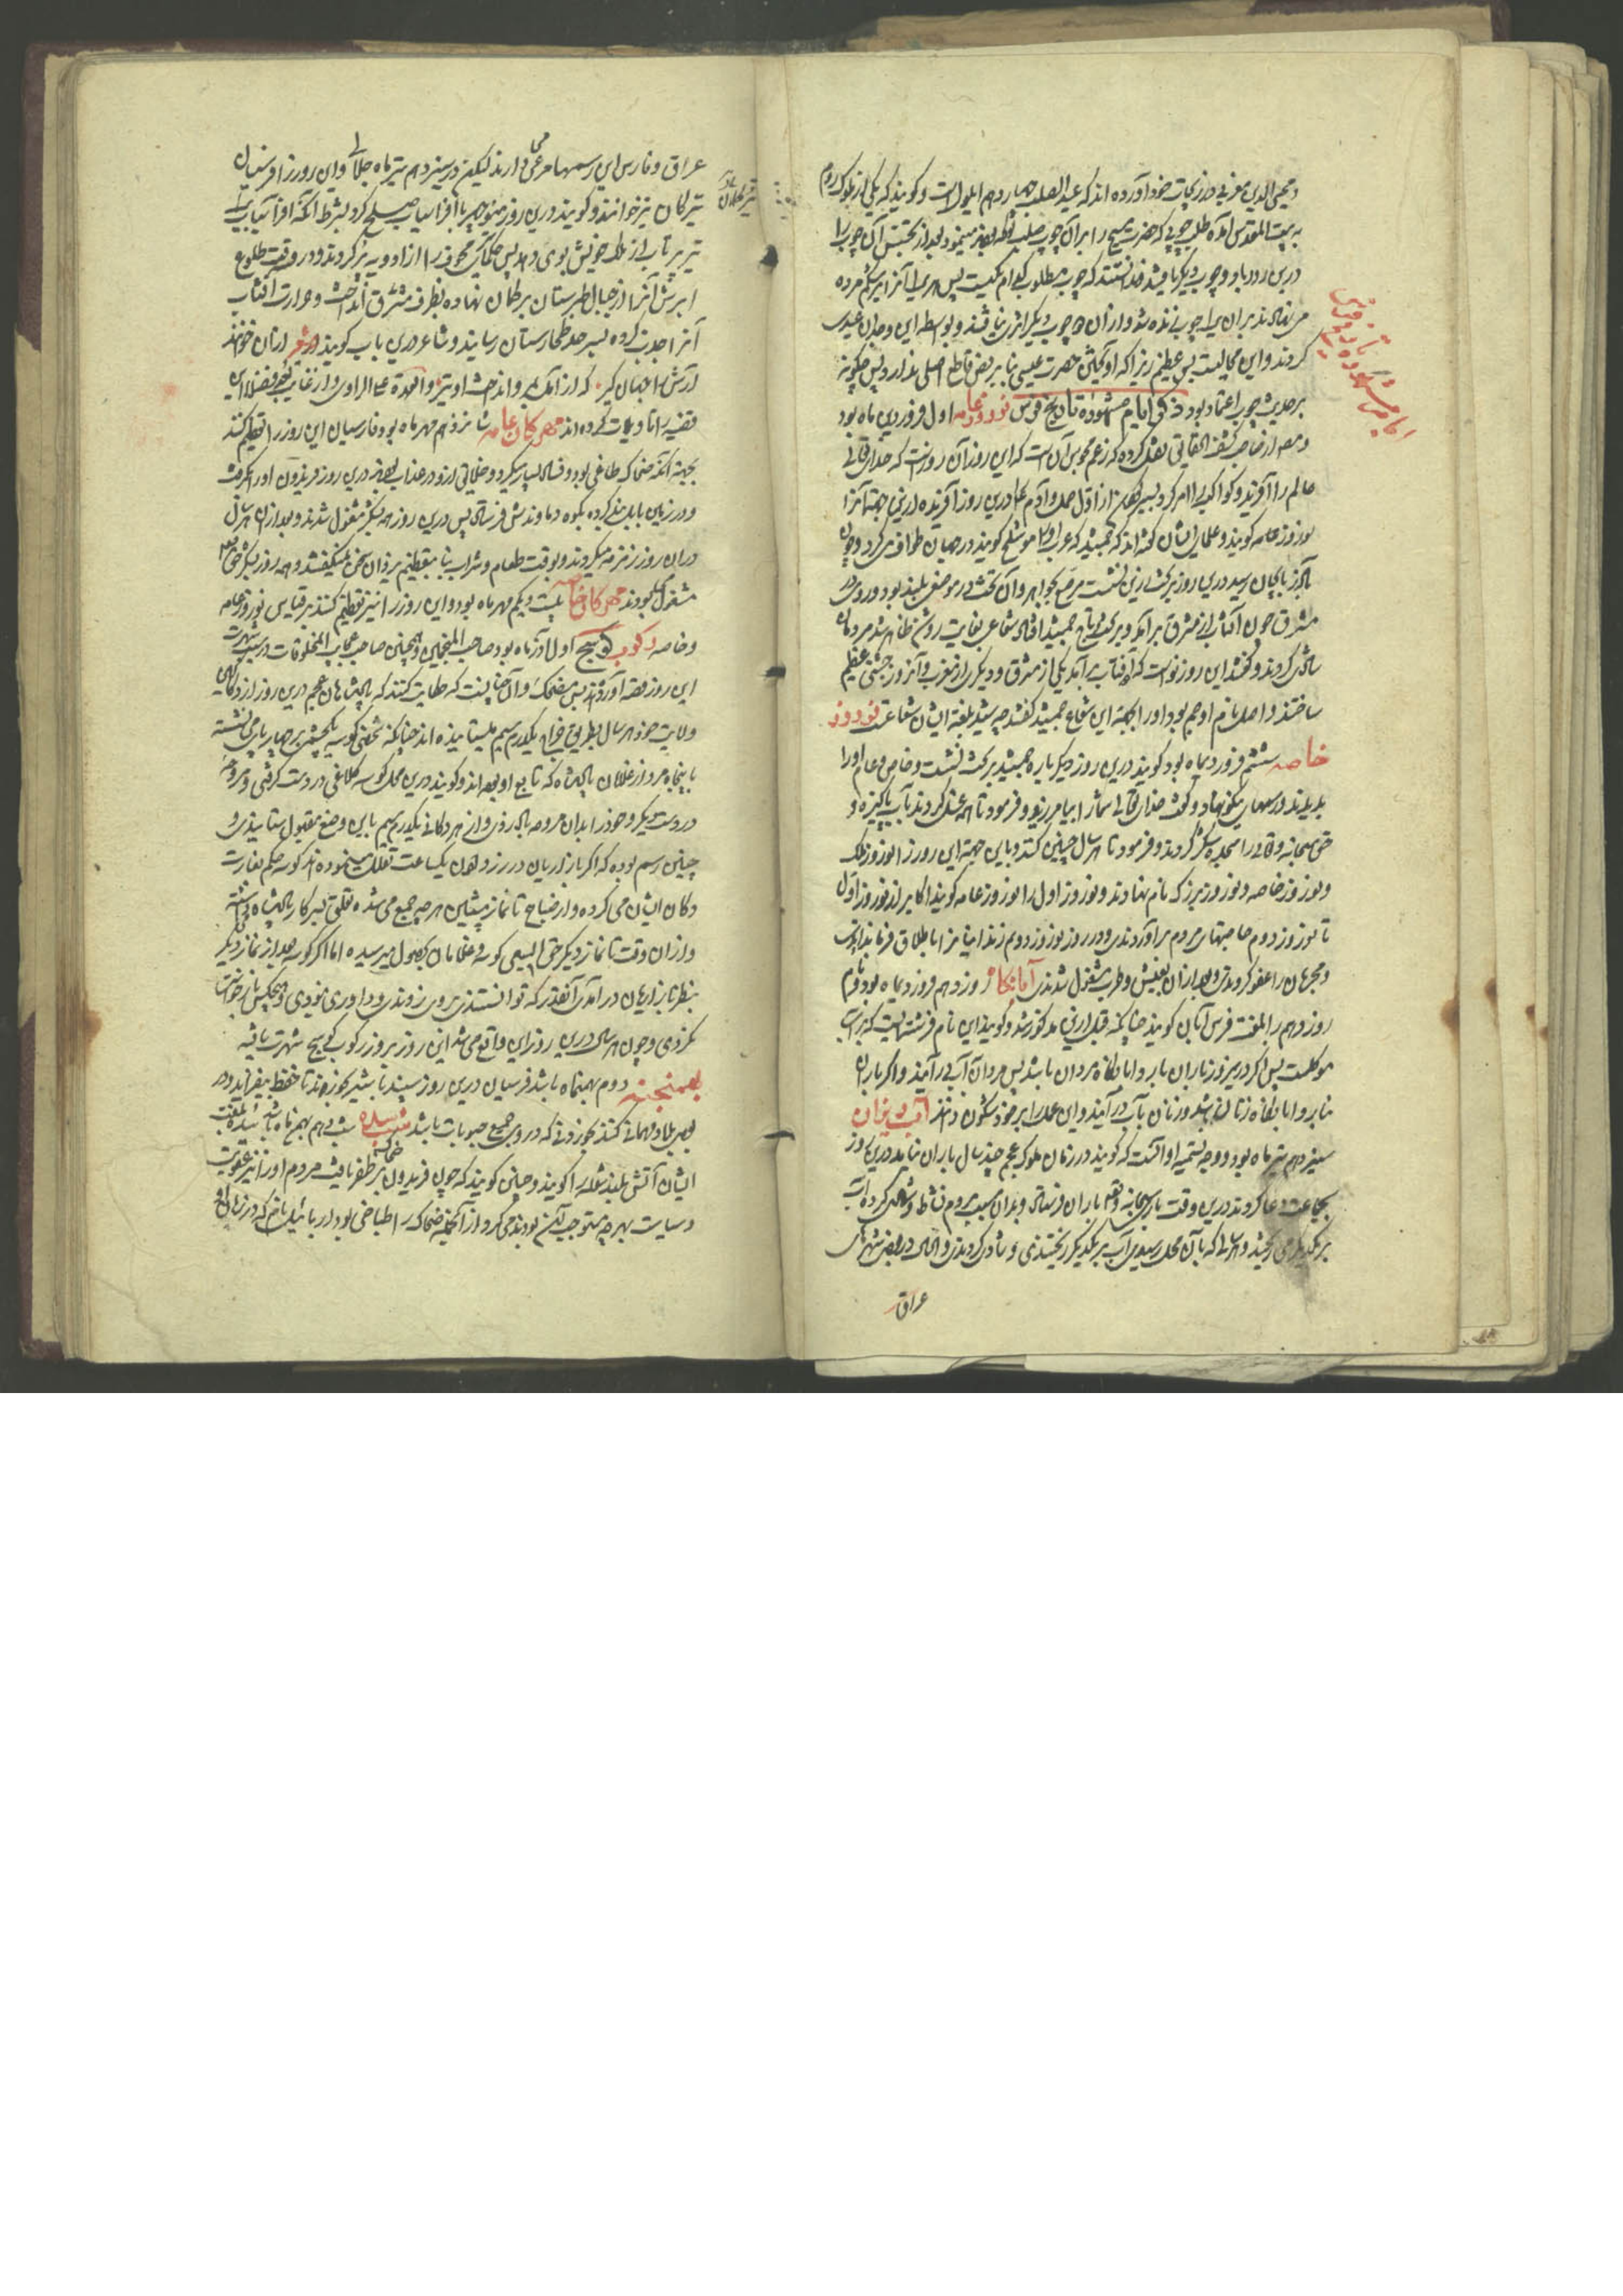 و محیی الدین مغربی در زیجات خود آورده اند که عید الصلیب چهاردهم ایلولست و گویند که یکی از ملوک روم
به بیت المقدس آمده طلب چوبی که حضرت مسیح را بر آن چوب صلب
درین رود باد و چوب دیگر یافتند ندانستند که چوب مطلوب کدام یکیست پس هر یکی را آنرا بر شکم مرده
می نهادند بر آن یک چوب زنده شد و از آن دو چوب دیگر اثری نیافتند و بواسطه این وجدان عید
کردند و این محالیست بس عظیم زیرا که آویختن حضرت عیسی بنا بر نص قاطع اصلی ندارد پس چگونه
بر حدیث چوب اعتماد بود ذکر ایام مشهوره تاریخ فرس نوروز عامه اول فروردین ماه بود
نقل کرده که زعم مجوس آن است که این روز آن روزست که خدای تعالی
عالم را آفرید و کواکب را امر کرد بسیر کردن از اول حمل و آدم را درین روز آفریده ازین جهة آنرا
نوروز عامه گویند و علمای ایشان گفته اند که جمشید که عرب او را منوشلخ گویند در جهان طواف می کرد و چون
بآذربایجان رسید درین روز بر تخت زرین نشست مرصع بجواهر و آن تخت در موضعی بلند بود و روی در
مشرق چون آفتاب از مشرق برآمد و بر تخت و تاج جمشید افتاد شعاعی بغایت روشن ظاهر شد مردمان
شادی کردند و گفتند این روز نو است که دو آفتاب برآمد یکی از مشرق و دیگری از مغرب و آنروز جشنی عظیم
ساختند و اصل نام او جم بود او را بجهة این شعاع جمشید گفتند چه شید بلغة ایشان شعاعست نوروز
خاصه ششم فروردیماه بود گویند درین روز دیگر باره جمشید بر تخت نشست و خاص و عام او را
بدیدند و رسمهای نیکو نهاد و گفت خدای تعالی شما را بیافریده و فرمود تا همه غسل کردند بآب پاکیزه و
حق سبحانه و تعالی را سجده شکر کردند و فرمود تا هر سال چنین کنند و باین جهة این روز را نوروز ملک
و نوروز خاصه و نوروز بزرگ نام نهادند و نوروز اول را نوروز عامه گویند اکابر از نوروز اول
تا نوروز دوم حاجتهای مردم برآوردندی و در روز نوروز دوم زندانیان را باطلاق فرمایند
و مجرمان را عفو کردندی و بعد از آن بعیش و طرب مشغول شدندی آبانگاه روز دهم فروردیماه بود و نام
روز دهم را بلغت فرس آبان گویند چنانکه قبل ازین مذکور شد و گویند این نام فرشته ایست که بر آب
موکلست پس اگر درین روز باران بارد آبانگاه مردان باشد پس مردان بآب درآیند و اگر باران
نبارد آبانگاه زنان باشد و زنان بآب درآیند و این عمل را بر خود شگون دانند آب ریزان
سیزدهم تیر ماه بود و وجه تسمیه او آنست که گویند در زمان ملوک عجم چند سال باران نیامد درین روز
بجماعت دعا کردند درین وقت باری سبحانه و تعالی باران فرستاد و بدان سبب مردم نشاط و شادی کرده آب
بر یکدیگر می ریختند و هر سال که بآن محل رسیدی آب بر یکدیگر ریختندی و شادی کردندی و الحال در بعضی شهرهای
عراق
ایام مشهوره تاریخ فرس
عراق و فارس این رسمها مرعی می دارند لیکن در سیزدهم تیر ماه جلالی و این روز را فرسیان
تیرگان نیز خوانند و گویند درین روز منوچهر با افراسیاب صلح کرد بشرط آنکه افراسیاب یک
تیر پرتاب از ملک خویش بوی دهد پس حکما تیری مجوف را از ادویه پر کردند و در وقت طلوع
آرش آنرا از جبال طبرستان بر کمان نهاده بطرف مشرق انداخت و حرارت آفتاب
آنرا جذب کرده بسرحد طخارستان رسانید و شاعر درین باب گوید شعر از آن خوانند
آرش را کمان گیر که از آمل بمرو انداخت او تیر و العهدة علی الراوی و از غایت تعجب فضلا این
قضیه را تاویلات کرده اند مهرگان عامه شانزدهم مهر ماه بود و فارسیان این روز را تعظیم کنند
بجهة آنکه ضحاک طاغی بود و فساد بسیار میکرد و خلایق ازو در عذاب بودند درین روز فریدون او را بگرفت
و در زمین بابل بند کرده بکوه دماوندش فرستاد پس درین روز همه بشکر مشغول شدند و بعد از آن هر سال
در آن روز زمزمه میکردند و بوقت طعام و شراب بنا بتعظیم یزدان سخن نمیگفتند و همه روز بشکر حق تعالی
مشغول میبودند مهرگان خاصه بیست و یکم مهر ماه بود و این روز را نیز تعظیم کنند بر قیاس نوروز عامه
و خاصه رکوب کوسج اول آذر ماه بود صاحب المنجمین و همچنین صاحب عجایب المخلوقات در سبب شهرت
این روز قصه آورده اند بس مضحک و آن چنانست که حکایت کنند که پادشاهان عجم درین روز از دکانهای
ولایت خود هر سال بطریق خراج یکدرم سیم میستانیده اند چنانکه شخصی کوسه یکچشم بر چهارپایی نشسته
با پنجاه مرد از غلامان پادشاه که تابع او بوده اند و گویند درین محل کوسه کلاغی در دست گرفتی و مروحه
در دست دیگر و خود را بدان مروحه باد زدی و از هر دکانی یکدرم سیم باین وضع مقبول ستانیدی و
چنین رسم بوده که اگر بازاریان در زر دادن یکساعت تعلل مینموده اند کوسه حکم بغارت
دکان ایشان می کرده و از صباح تا نماز پیشین هر چه جمع می شده تعلق بسرکار پادشاه می داشته
و از آن وقت تا نماز دیگر حق السعی کوسه و غلامان بحصول میرسیده اما اگر کوسه بعد از نماز دیگر
بنظر بازاریان درآمدی آنقدر که توانستندی بروی زدندی و داوری نمودی و هیچکس بازخواست
نکردی و چون هر سال درین روز این واقع می شد این روز بروز رکوب کوسج شهرت یافته
بهمنجنه دوم بهمنماه باشد فرسیان درین روز سپند با شیر خورند تا حفظ بیفزاید و در
بعضی بلاد مهمانی کنند بخوردنی که در وی جمیع حبوبات باشد شب سده شب دهم بهمن ماه باشد سده بلغت
ایشان آتش بلند شعله را گویند و چنین گویند که چون فریدون بر ضحاک ظفر یافت مردم او را نیز عقوبت
و سیاست بهر چه مستوجب آن بودند می کرد و از آنجمله ضحاک را طباخی بود ارمائیل نام که در زمان او
تیرگان